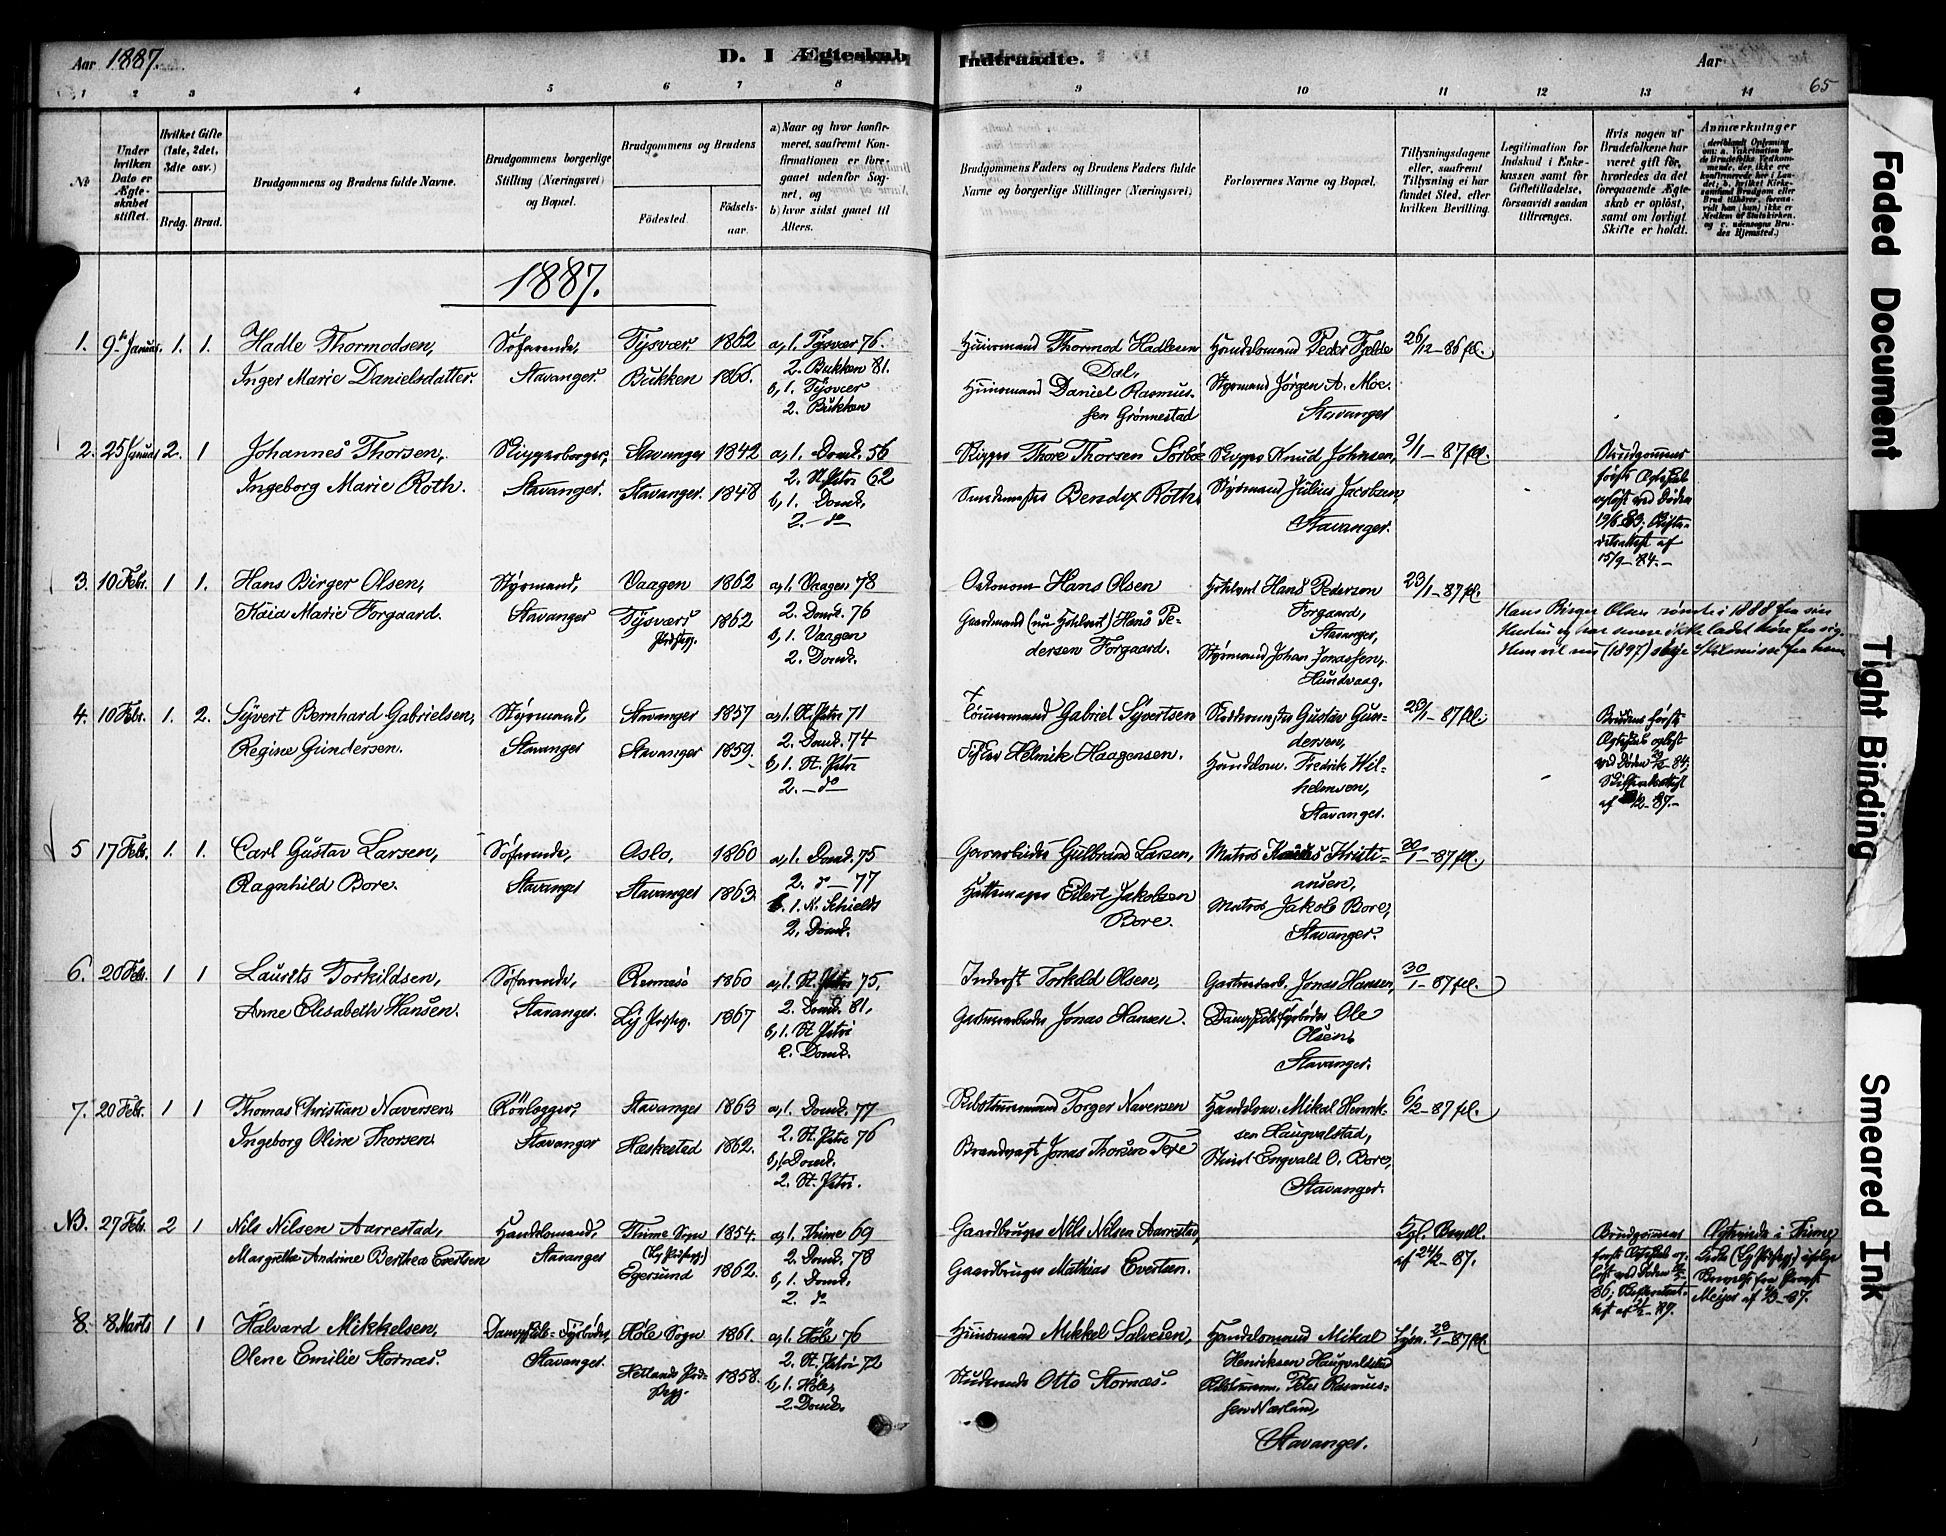 Aar 1887.
D. I Ægteskab
Indtraadte.
Aar
65
1 2 3 4 5 6 7 8 9 10 11 12 13 14
No
Under hvilken Dato er Ægteskabet stiftet.
Hvilket Gifte (1ste, 2det, 3die osv.)
Brdg. Brud.
Brudgommens og Brudens fulde Navne.
Brudgommens borgerlige Stilling (Næringsvei) og Bopæl.
Brudgommens og Brudens
Födested. Födselsaar.
a) Naar og hvor konfirmeret, saafremt Konfirmationen er foregaaet udenfor Sognet, og
b) hvor sidst gaaet til Alters.
Brudgommens Faders og Brudens Faders fulde Navne og borgerlige Stillinger (Næringsvei)
Forlovernes Navne og Bopæl.
Tillysningsdagene eller, saafremt Tillysning ei har fundet Sted, efter hvilken Bevilling.
Legitimation for Indskud i Enkekassen samt for Giftetilladelse, forsaavidt saadan tiltrænges.
Hvis nogen af Brudefolkene har været gift för, hvorledes da det foregaaende Ægteskab er oplöst, samt om lovligt Skifte er holdt.
Anmærkninger
1887.
1. 9de Januar. 1. 1. Hadle Thormodsen, Søfarende, Tysvær, 1862 a, 1. Tysvær 76.
Inger Marie Danielsdatter. Stavanger. Bukken 1866. 2. Bukken 81.
b, 1. Tysvær
2. Bukken
Huusmand Thormod Hadlesen Dal,
Huusmand Daniel Rasmussen Grønnestad
Handelsmand Peder Fjelde
Styrmand Jørgen A. Moe.
Stavanger
26/12-86 fl.
2. 25 Januar 2. 1 Johannes Thorsen, Skipperborger, Stavanger 1842 a, 1. Domk. 56
Ingeborg Marie Roth. Stavanger. Stavanger. 1848 2. St. Petri 62
b, 1. Domk.
2. - do -
Skipper Thore Thorsen Sörboe
Bendix Roth.
Skipper Knud Johnsen,
Styrmand Julius Jacobsen,
Stavanger.
9/1-87 fl.
Brudgommens første Ægteskab opløst ved Døden 19/6 83; Skifteretsattest af 15/9-84.-
3. 10 Febr. 1 1. Hans Birger Olsen, Styrmand, Vaagen 1862 a, 1. Vaagen 78
Kaia Marie Forgaard. Stavanger Tysværs Præstegj. 1862 2. Domk. 76
b, 1. Vaagen
2. Domk.
Hans Olsen
Gaardmand (nu Hotelvert) Hans Pedersen Forgaard.
Hotelvert Hans Pedersen Forgaard, Stavanger,
Styrmand Johan Jonassen, Hundvaag.
23/1-87 fl.
Hans Birger Olsen rømte i 1888 fra sin
Hustru og har senere ikke ladet høre fra sig.
Hun vil nu (1897) søge Skilsmisse fra ham
4. 10 Febr. 1. 2. Syvert Bernhard Gabrielsen, Styrmand, Stavanger 1857 a, 1. St. Petri 71
Regine Gundersen. Stavanger Stavanger 1859. 2. Domk. 74
b, 1. St. Petri
2. - do -
Tømmermand Gabriel Syvertsen
Helmik Haagensen.
Gustav Gundersen,
Handelsm. Fredrik Wilhelmsen,
Stavanger.
23/1-87 fl.
Brudens første Ægteskab opløst ved Døden 84;
5 17 Febr. 1. 1. Carl Gustav Larsen, Søfarende, Oslo, 1860 a, 1. Domk. 75
Ragnhild Bore. Stavanger Stavanger 1863. 2. do - 77
b. 1. N. Schields
2. Domk.
Garverarbeider Gulbrand Larsen,
Hattemager Eilert Jakobsen Bore.
Matros Kristiansen,
Matros Jakob Bore, Stavanger.
30/1-87 fl.
6. 20 Feb. 1 1 Laurits Torkildsen, Søfarende, Rennesö 1860 a, 1. St. Petri 75,
Anne Elisabeth Hansen. Stavanger. Ly Præsteg. 1867 2. Domk. 81,
b, 1. St. Petri
2. Domk.
Inderst Torkild Olsen,
Jonas Hansen.
Jonas Hansen,
Ole Olsen,
Stavanger.
30/1-87 fl.
7. 20 Febr. 1 1 Thomas Christian Naversen, Rörlægger, Stavanger 1863 a, 1. Domk. 77
Ingeborg Oline Thorsen. Stavanger Hæskestad 1862. 2. St. Petri 76
b, 1. Domk.
2. St. Petri.
Torger Naversen
Brandvagt Jonas Thorsen
Handelsm. Mikal Henriksen Haugvalstad,
Engvald O. Bore,
Stavanger.
6/2-87 fl.
NB. 27 Feb. 2 1 Nils Nilsen Aarrestad, Handelsmand, Thime Sogn 1854. a, 1. Thime 69
Margrethe Andrine Berthea Evertsen Stavanger (Ly Præsteg.) Egersund 1862. 2. Domk. 78
b, 1. Domk.
2. do
Gaardbruger Nils Nilsen Aarrestad,
Gaardbruger Mathias Evertsen.
Kgl. Bevill. af 24/2-87.
Brudgommens første Ægteskab opløst ved Døden
Ægteviede i Thime Kirke (Ly Præsteg.) ifølge Bevidst fra Provst
8. 8 Marts 1 1 Halvard Mikkelsen, Dampskibs-Fyrbøder, Höle Sogn 1861. a, 1. Höle 76
Olene Emilie Stornæs. Stavanger. Hetlands Præstegj. 1858. 2. St. Petri 72
b, 1. Höle,
2. Domk.
Huusmand Mikkel Salvesen,
Studerende Otto Stornæs.
Handelsmand Mikal Henriksen Haugvaldstad
Peter Rasmussen Nærland,
Stavanger.
Lysn. 23/1-87 fl.
Faded Document
Tight Binding
Smeared Ink